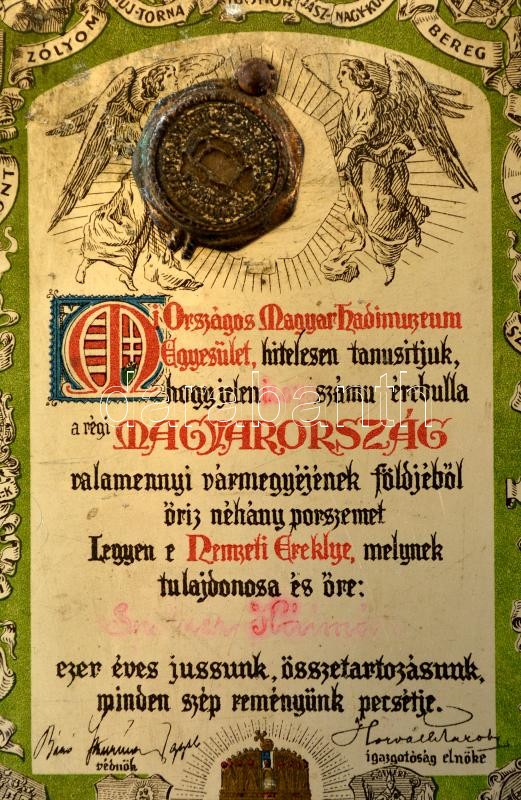 UJ-TORNA
JÁSZ-NAGY-KU
ZÓLYOM
BEREG
Mi Országos Magyar Hadimuzeum
Egyesület, hitelesen tanusitjuk,
hogy jelen számu ércbulla
a régi MAGYARORSZÁG
valamennyi vármegyéjének földjéből
őriz néhány porszemet
Legyen e Nemzeti Ereklye, melynek
tulajdonosa és őre:
Kálmán
ezer éves jussunk, összetartozásunk,
minden szép reményünk pecsétje.
védnök
igazgatóság elnöke
darabanth